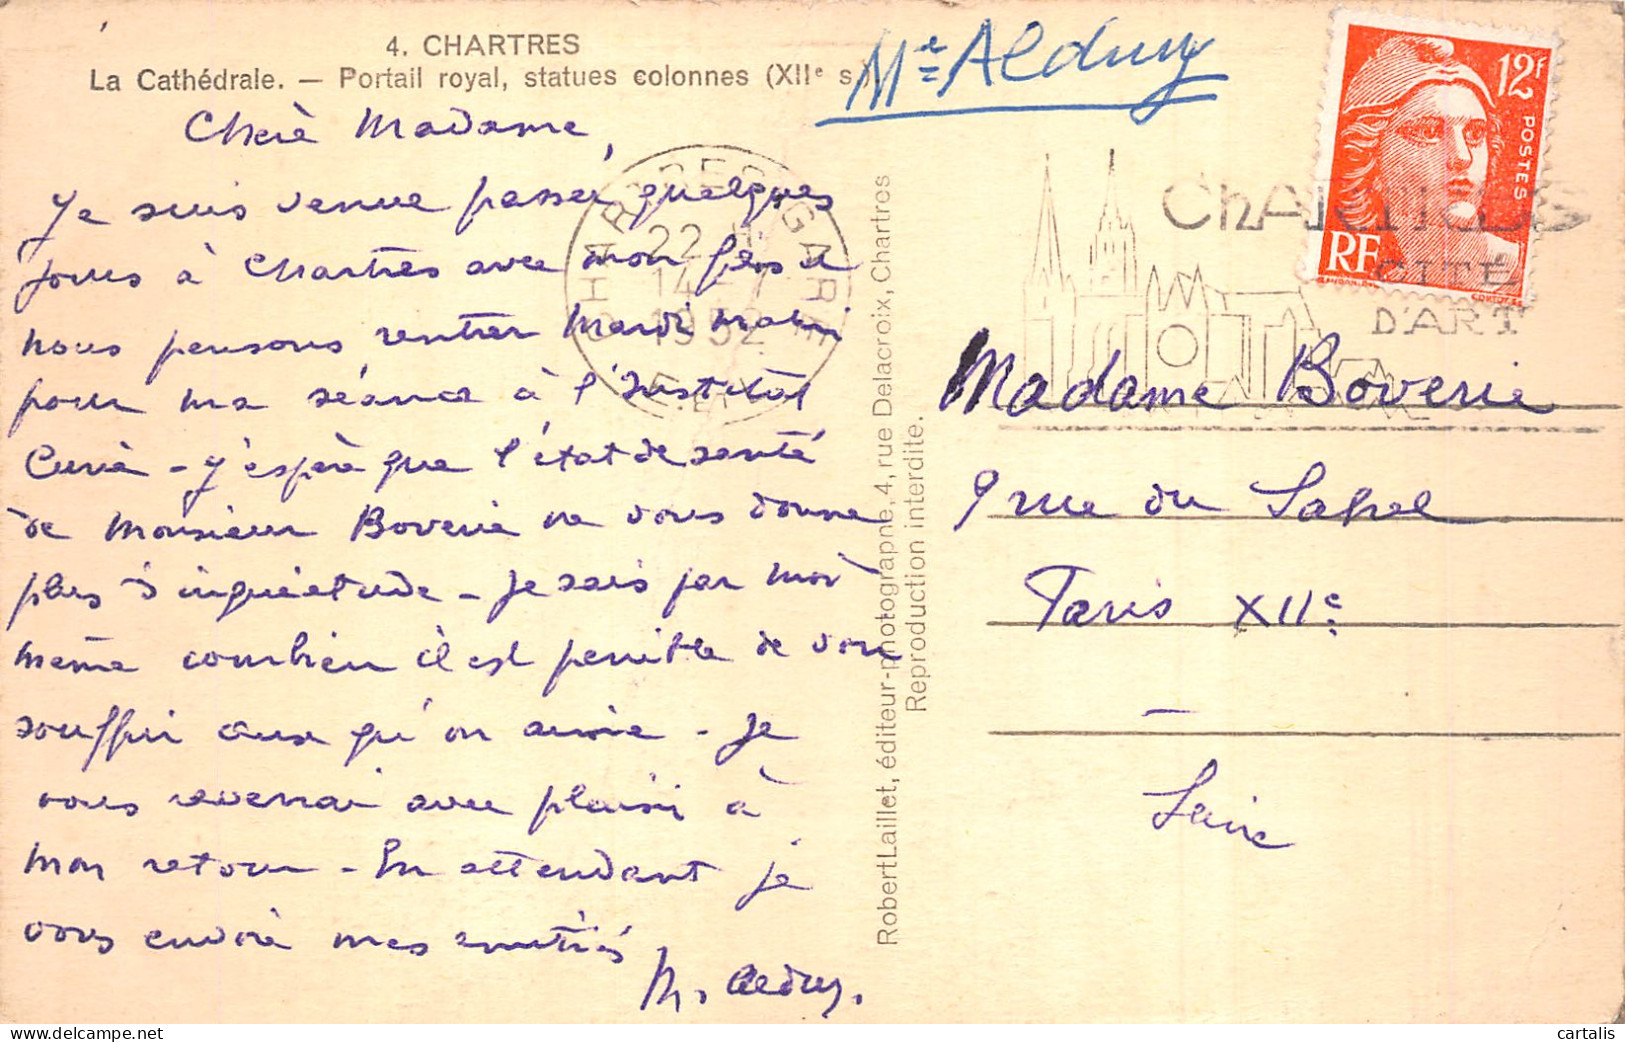 4. CHARTRES
La Cathédrale. — Portail royal, statues colonnes (XIIe s.).
Mme Aldruy
Chère Madame,
Je suis venue passer quelques
jours à Chartres avec mon fils et
nous pensons rentrer Mardi matin
pour ma séance à l'Institut
Curie - J'espère que l'état de santé
de Monsieur Boverie ne vous donne
plus d'inquiétude - Je sais par moi
même combien il est pénible de voir
souffrir ceux qu'on aime - Je
vous reverrai avec plaisir à
mon retour - En attendant je
vous envoie mes amitiés
M. Aldruy.
CHARTRES GARE
22 H
14 -
1952
E. ET L.
RobertLaillet, éditeur-photographe, 4, rue Delacroix, Chartres
Reproduction interdite.
12F
POSTES
RF
GANDON
CORTOT SC
ChARTRES
CITÉ
D'ART
Madame Boverie
9 rue du Sahel
Paris XIIe
Seine
cartalis